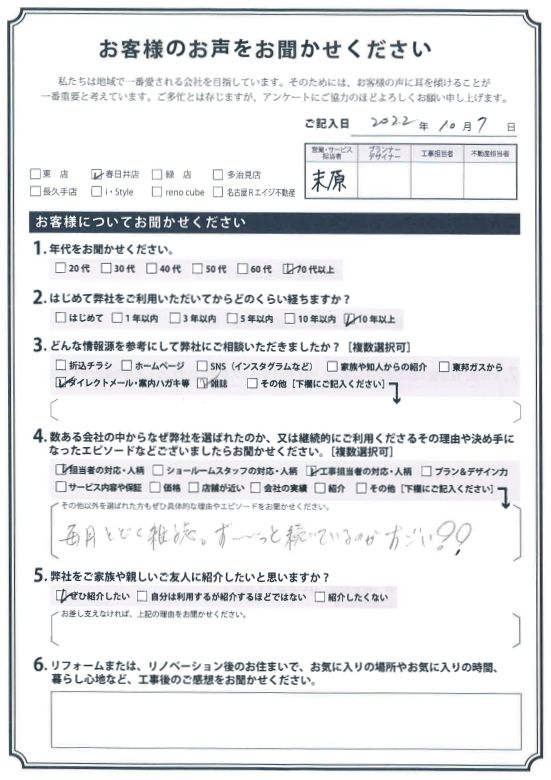 お客様のお声をお聞かせください
私たちは地域で一番愛される会社を目指しています。そのためには、お客様の声に耳を傾けることが
一番重要と考えています。ご多忙とは存じますが、アンケートにご協力のほどよろしくお願い申し上げます。
ご記入日 2022 年 10 月 7 日
営業・サービス担当者 プランナーデザイナー 工事担当者 不動産担当者
末原
□東 店 ☑春日井店 □緑 店 □多治見店
□長久手店 □i・Style □reno cube □名古屋Rエイジ不動産
お客様についてお聞かせください
1. 年代をお聞かせください。
□20代 □30代 □40代 □50代 □60代 ☑70代以上
2. はじめて弊社をご利用いただいてからどのくらい経ちますか？
□はじめて □1年以内 □3年以内 □5年以内 □10年以内 ☑10年以上
3. どんな情報源を参考にして弊社にご相談いただきましたか？［複数選択可］
□折込チラシ □ホームページ □SNS（インスタグラムなど） □家族や知人からの紹介 □東邦ガスから
☑ダイレクトメール・案内ハガキ等 ☑雑誌 □その他［下欄にご記入ください］
4. 数ある会社の中からなぜ弊社を選ばれたのか、又は継続的にご利用くださるその理由や決め手に
なったエピソードなどございましたらお聞かせください。［複数選択可］
☑担当者の対応・人柄 □ショールームスタッフの対応・人柄 ☑工事担当者の対応・人柄 □プラン＆デザイン力
□サービス内容や保証 □価格 □店舗が近い □会社の実績 □紹介 □その他［下欄にご記入ください］
その他以外を選ばれた方もぜひ具体的な理由やエピソードをお聞かせください。
毎月とどく雑誌。ず〜〜っと続いているのがすごい!?
5. 弊社をご家族や親しいご友人に紹介したいと思いますか？
☑ぜひ紹介したい □自分は利用するが紹介するほどではない □紹介したくない
お差し支えなければ、上記の理由をお聞かせください。
6. リフォームまたは、リノベーション後のお住まいで、お気に入りの場所やお気に入りの時間、
暮らし心地など、工事後のご感想をお聞かせください。